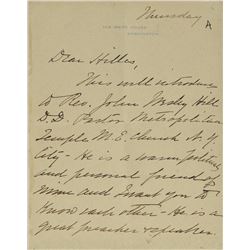 Thursday A
THE WHITE HOUSE
WASHINGTON
Dear Hilles,
This will introduce
to Rev. John Wesley Hill
D.D. Pastor Metropolitan
Temple M.E. Church N.Y.
City - He is a warm political
and personal friend of
mine and I want you to
know each other - He is a
great preacher & speaker.